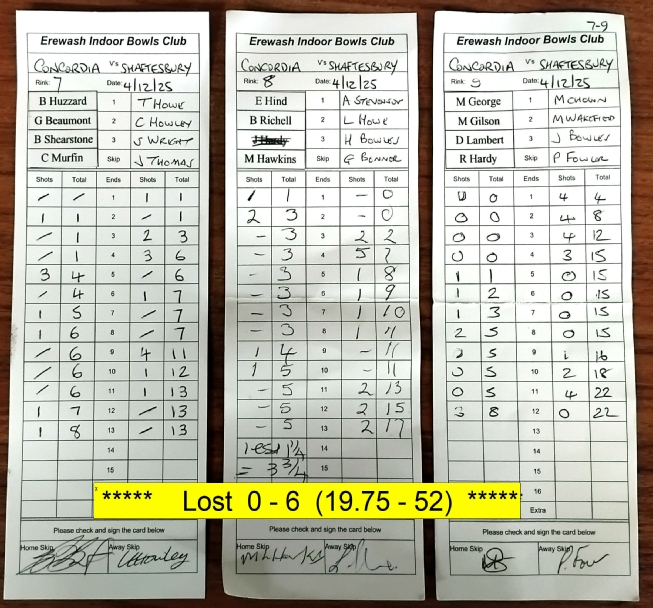 Erewash Indoor Bowls Club
CONCORDIA Vs SHAFTESBURY
Rink: 7 Date: 4/12/25
B Huzzard 1 T HOWE
G Beaumont 2 C HOWLEY
B Shearstone 3 S WRIGHT
C Murfin Skip J THOMAS
Shots Total Ends Shots Total
/ / 1 1 1
1 1 2 / 1
/ 1 3 2 3
/ 1 4 3 6
3 4 5 / 6
/ 4 6 1 7
1 5 7 / 7
1 6 8 / 7
/ 6 9 4 11
/ 6 10 1 12
/ 6 11 1 13
1 7 12 / 13
1 8 13 / 13
14
15
Please check and sign the card below
Home Skip Away Skip
Erewash Indoor Bowls Club
CONCORDIA Vs SHAFTESBURY
Rink: 8 Date: 4/12/25
E Hind 1 A STEVENSON
B Richell 2 L HOWE
3 H BOWLES
M Hawkins Skip G BONNOR
Shots Total Ends Shots Total
1 1 1 - 0
2 3 2 - 0
- 3 3 2 2
- 3 4 5 7
- 3 5 1 8
- 3 6 1 9
- 3 7 1 10
- 3 8 1 11
1 4 9 - 11
1 5 10 - 11
- 5 11 2 13
- 5 12 2 15
- 5 13 2 17
14
= 3 3/4 15
Please check and sign the card below
Home Skip Away Skip
7-9
Erewash Indoor Bowls Club
CONCORDIA Vs SHAFTESBURY
Rink: 9 Date: 4/12/25
M George 1
M Gilson 2 M WAKEFIELD
D Lambert 3 J BOWLES
R Hardy Skip P FOWLER
Shots Total Ends Shots Total
0 0 1 4 4
0 0 2 4 8
0 0 3 4 12
0 0 4 3 15
1 1 5 0 15
1 2 6 0 15
1 3 7 0 15
2 5 8 0 15
5 9 1 16
0 5 10 2 18
0 5 11 4 22
3 8 12 0 22
13
14
15
16
Extra
Please check and sign the card below
Home Skip Away Skip
***** Lost 0 - 6 (19.75 - 52) *****